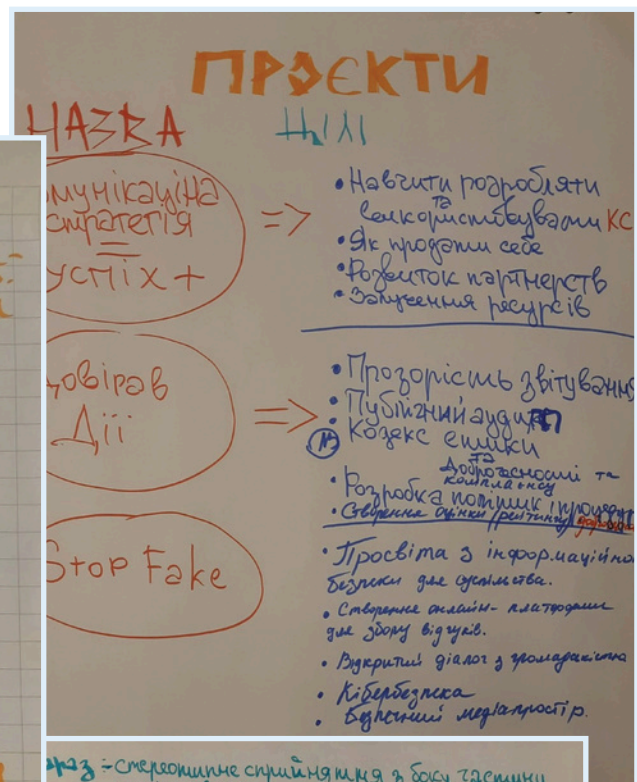 ПРОЄКТИ
НАЗВА
ЦІЛІ
мунікаціна
стратегія
=
УСПІХ +
=>
• Навчити розробляти
та
КС
• Як продати себе
• Розвиток партнерств
• Залучення ресурсів
довірав
Дії
=>
• Прозорість звітування
• Публічний аудит
• Кодекс етики
та
Доброчесності та
комплаєнсу
• Розробка політик і
• Створення оцінки / рейтингу
Stop Fake
• Просвіта з інформаційно
безпеки для суспільства.
• Створення онлайн-платформи
для збору відгуків.
• Відкритий діалог з громадськістю
• Кібербезпека
• Безпечний медіапростір.
раз :- стереотипне сприйняття з боку частини